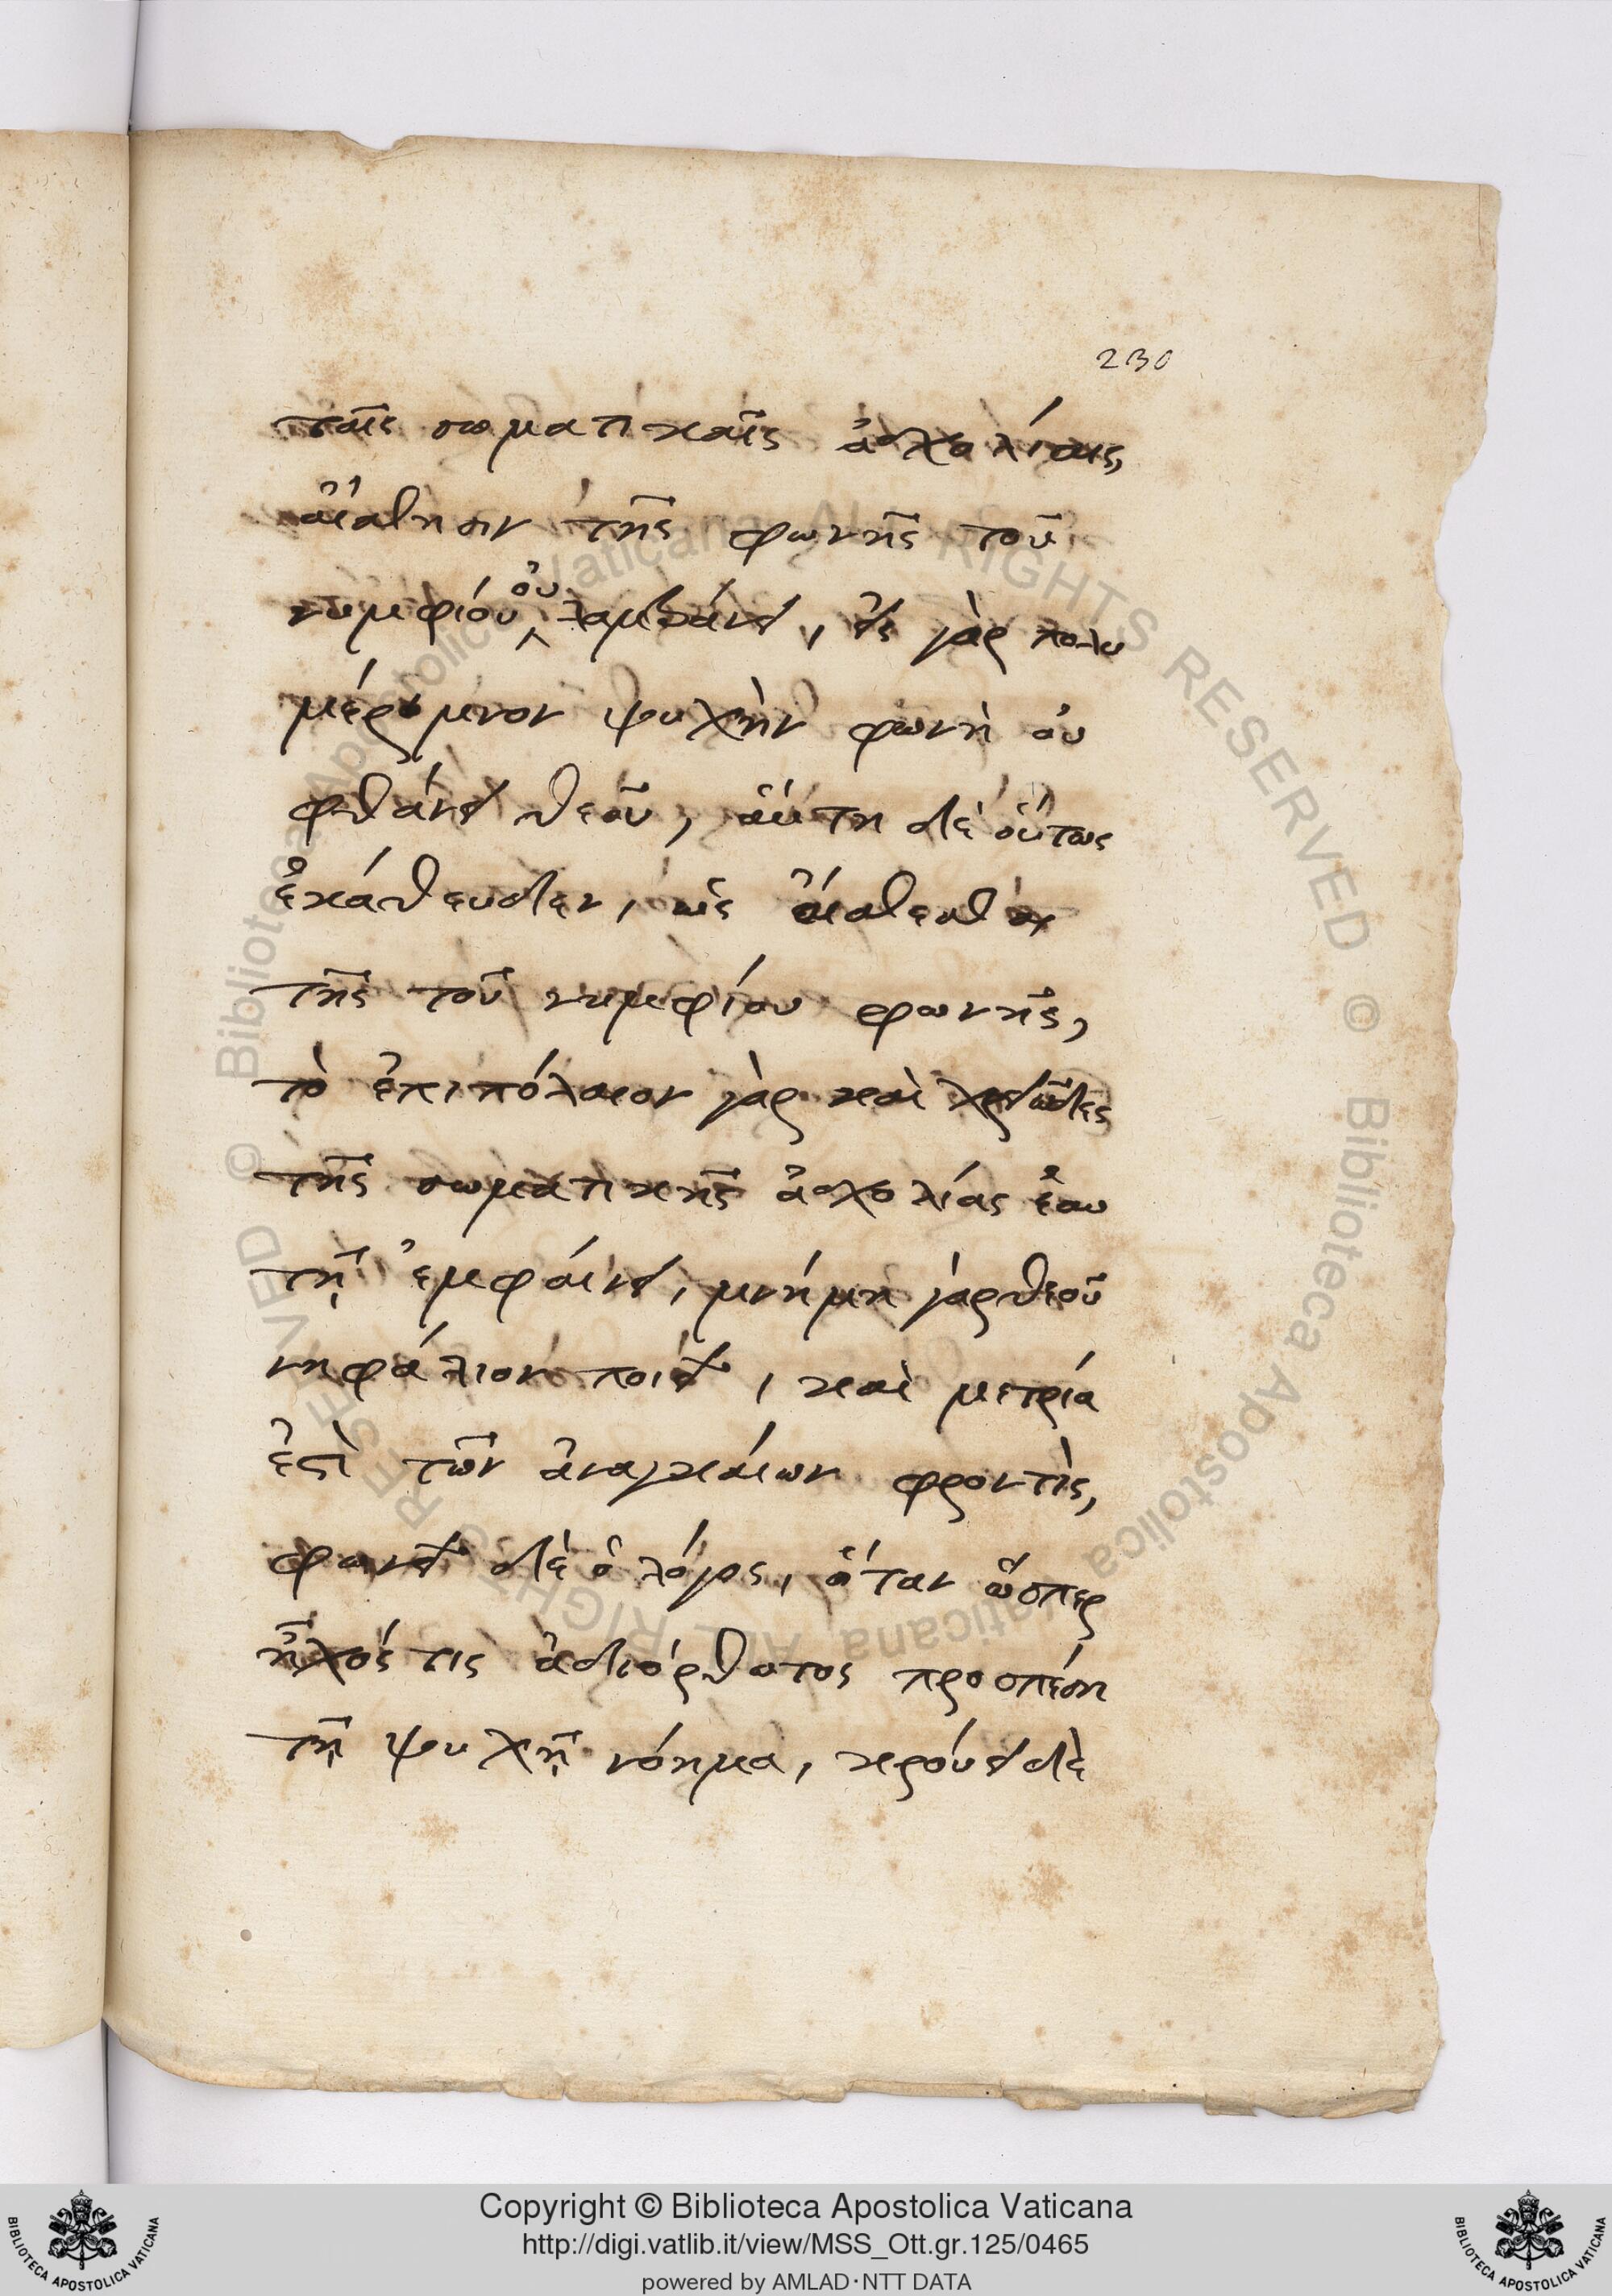 230
ταῖς σωματικαῖς ἀσχολίαις,
αἴσθησιν τῆς φωνῆς τοῦ
νυμφίου οὐ λαμβάνει, εἰς γὰρ πολυ
μέριμνον ψυχὴν φωνὴ οὐ
φθάνει θεοῦ, αὕτη δὲ οὕτως
ἐκάθευδεν, ὡς αἴσθεσθαι
τῆς τοῦ νυμφίου φωνῆς,
τὸ ἐπιπόλαιον γὰρ καὶ χρειῶδες
τῆς σωματικῆς ἀσχολίας ἑαυ
τῇ ἐμφαίνει, μνήμη γὰρ θεοῦ
νηφάλιον ποιεῖ, καὶ μετρία
ἐστὶ τῶν ἀναγκαίων φροντὶς,
φωνεῖ δὲ ὁ λόγος, ὅταν ὥσπερ
ἦχός τις ἀδιόρθωτος προσπέσῃ
τῇ ψυχῇ νόημα, κρούει δὲ
© Biblioteca Apostolica Vaticana ALL RIGHTS RESERVED © Biblioteca Apostolica Vaticana ALL RIGHTS RESERVED
Copyright © Biblioteca Apostolica Vaticana
http://digi.vatlib.it/view/MSS_Ott.gr.125/0465
powered by AMLAD·NTT DATA
BIBLIOTECA APOSTOLICA VATICANA
BIBLIOTECA APOSTOLICA VATICANA